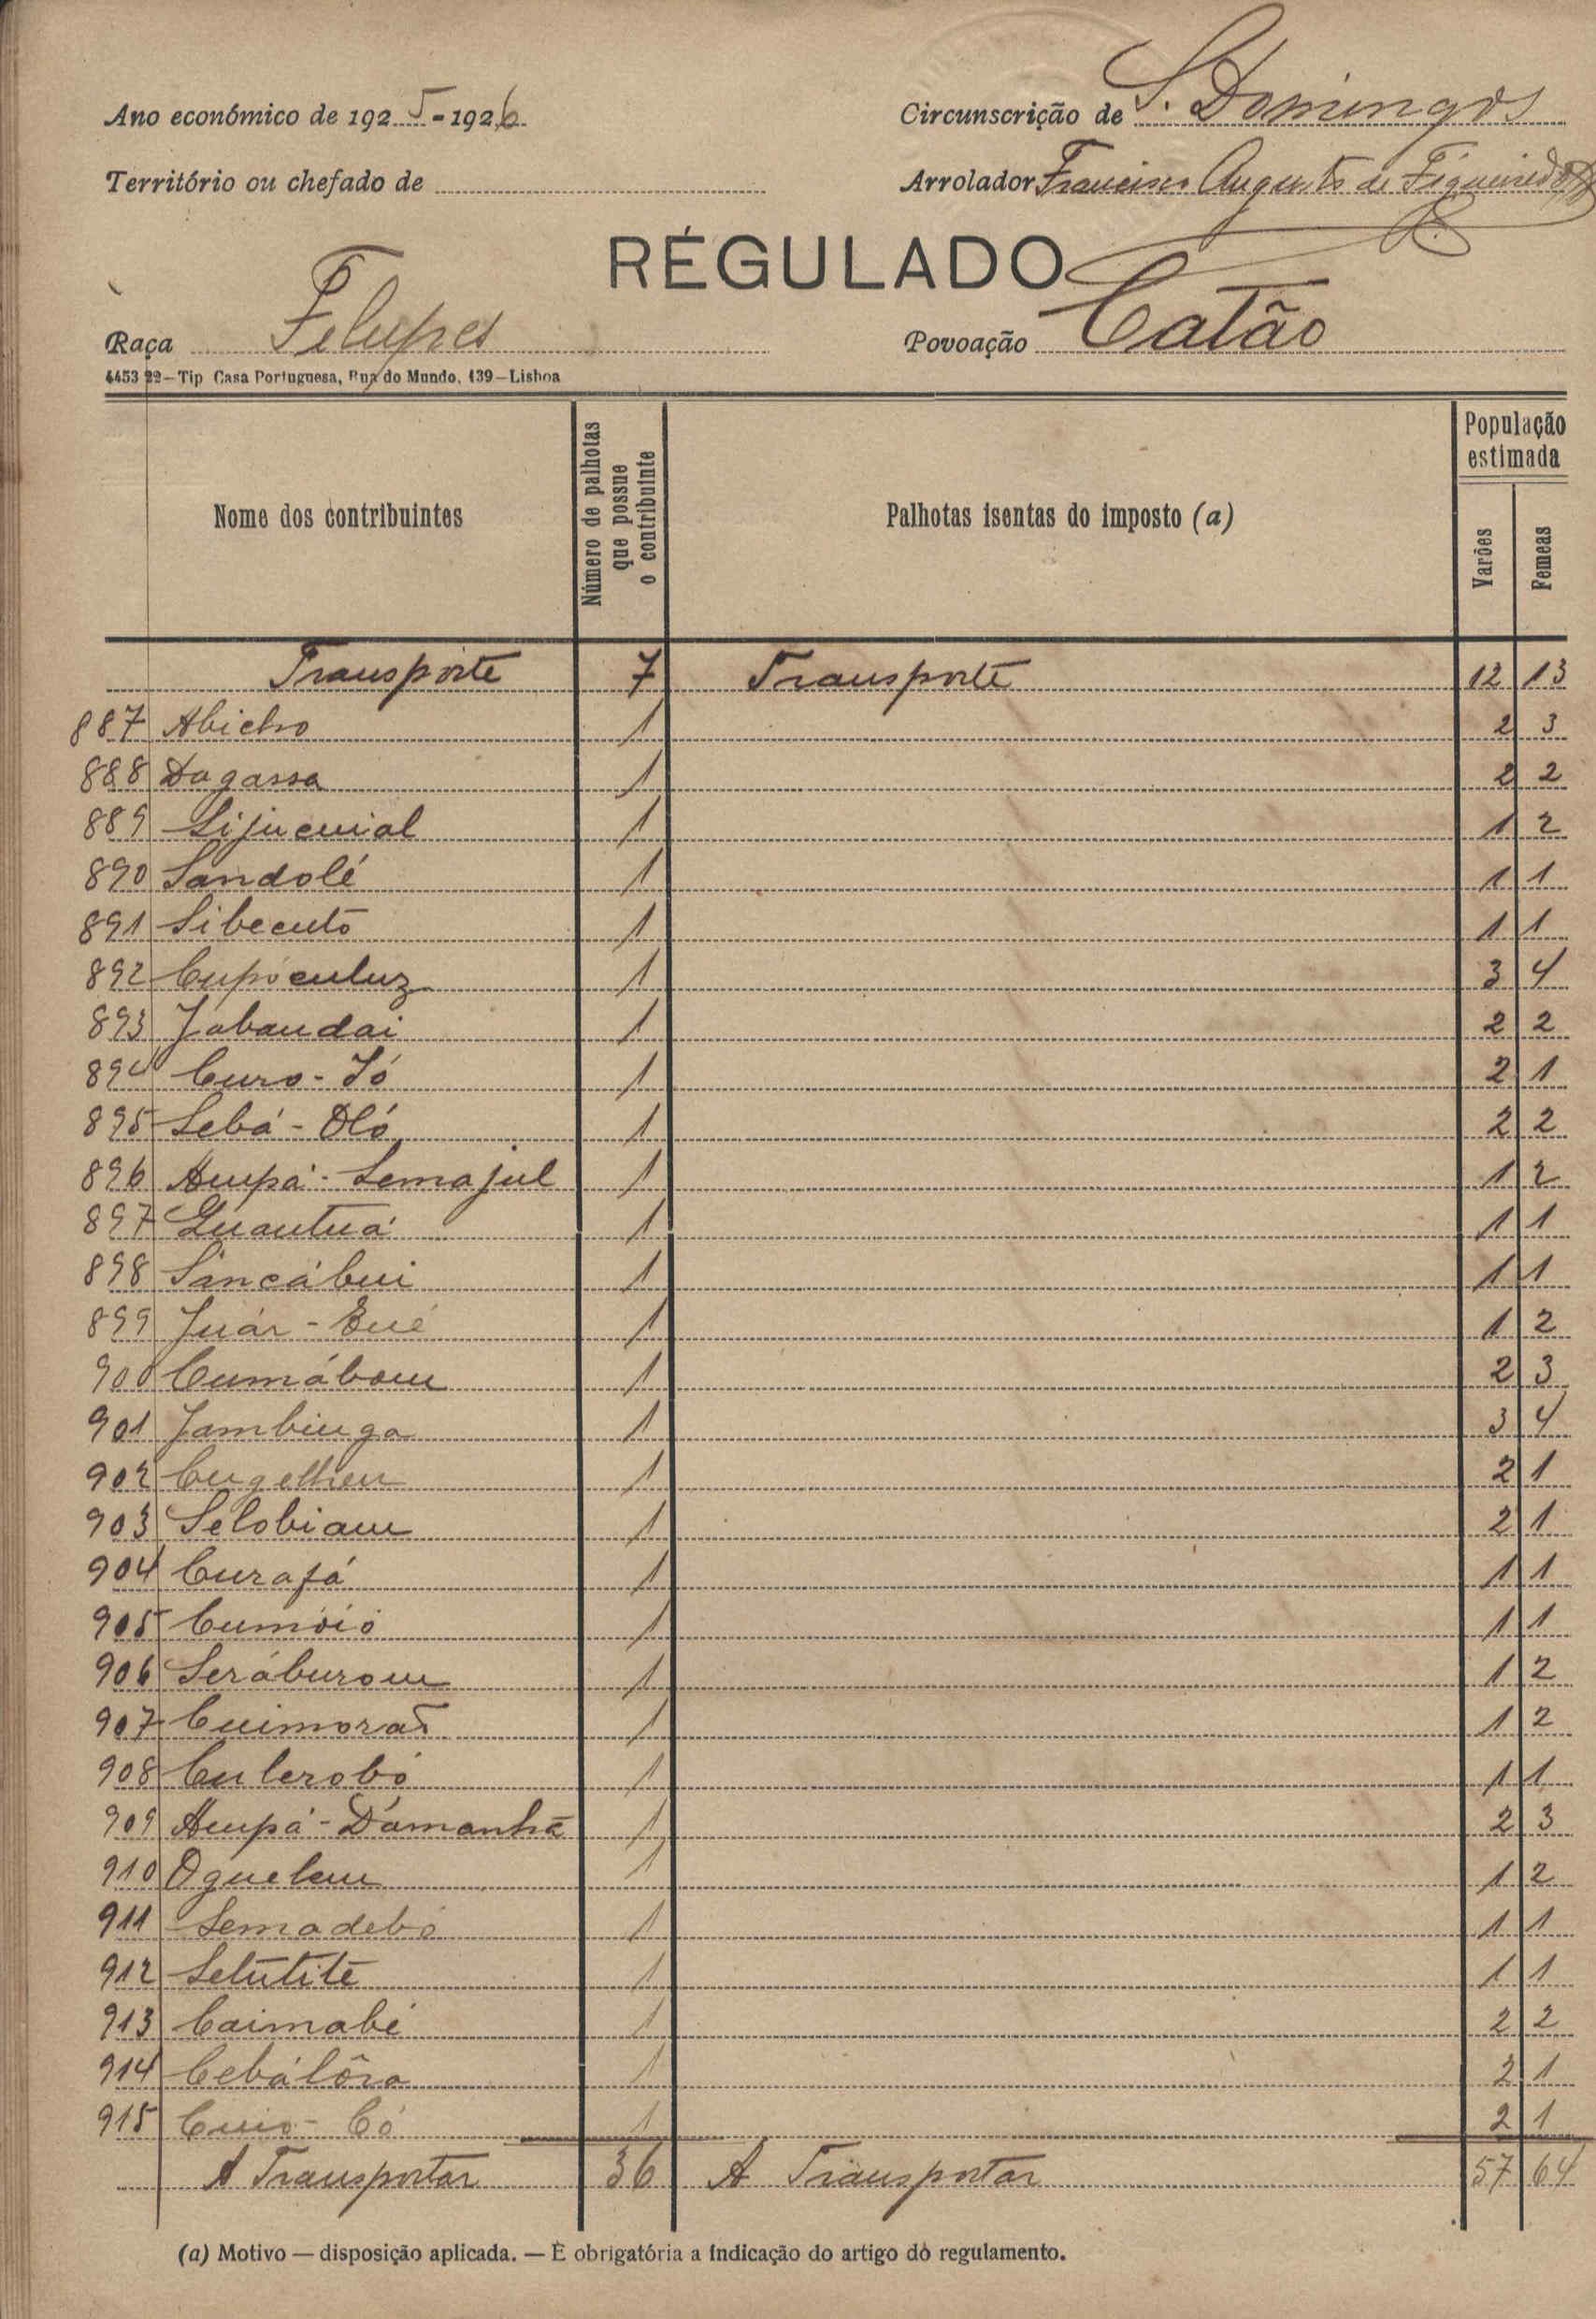 Ano económico de 1925-1926
Circunscrição de S. Domingos
Território ou chefado de
Arrolador Francisco Augusto de Figueiredo
RÉGULADO
Raça Felupes
Povoação Catão
4453 22—Tip Casa Portuguesa, Rua do Mundo, 139—Lisboa
Nome dos contribuintes
Número de palhotas que possue o contribuinte
Palhotas isentas do imposto (a)
População estimada
Varões
Femeas
Transporte 7 Transporte 12 13
887 Abicho 1 2 3
888 Dagassa 1 2 2
889 Sijucuial 1 1 2
890 Sandolé 1 1 1
891 Sibecuto 1 1 1
892 Cupóculuz 1 3 4
893 Jabaudai 1 2 2
894 Curo-Jó 1 2 1
895 Sebá-Oló 1 2 2
896 Aupá-Semajul 1 1 2
897 Quantuá 1 1 1
898 Sancábui 1 1 1
899 Juár-Eué 1 1 2
900 Cumábou 1 2 3
901 Jambiuga 1 3 4
902 1 2 1
903 Selobiam 1 2 1
904 Curafá 1 1 1
905 Cumoió 1 1 1
906 Seráburom 1 1 2
907 Cuimorão 1 1 2
908 Culerobó 1 1 1
909 Aupá-Dámanhã 1 2 3
910 Oguelem 1 1 2
911 Semadebó 1 1 1
912 Setutite 1 1 1
913 Caimabé 1 2 2
914 Cebálôra 1 2 1
915 Cuio-Có 1 2 1
A Transportar 36 A Transportar 57 64
(a) Motivo — disposição aplicada. — É obrigatória a indicação do artigo do regulamento.